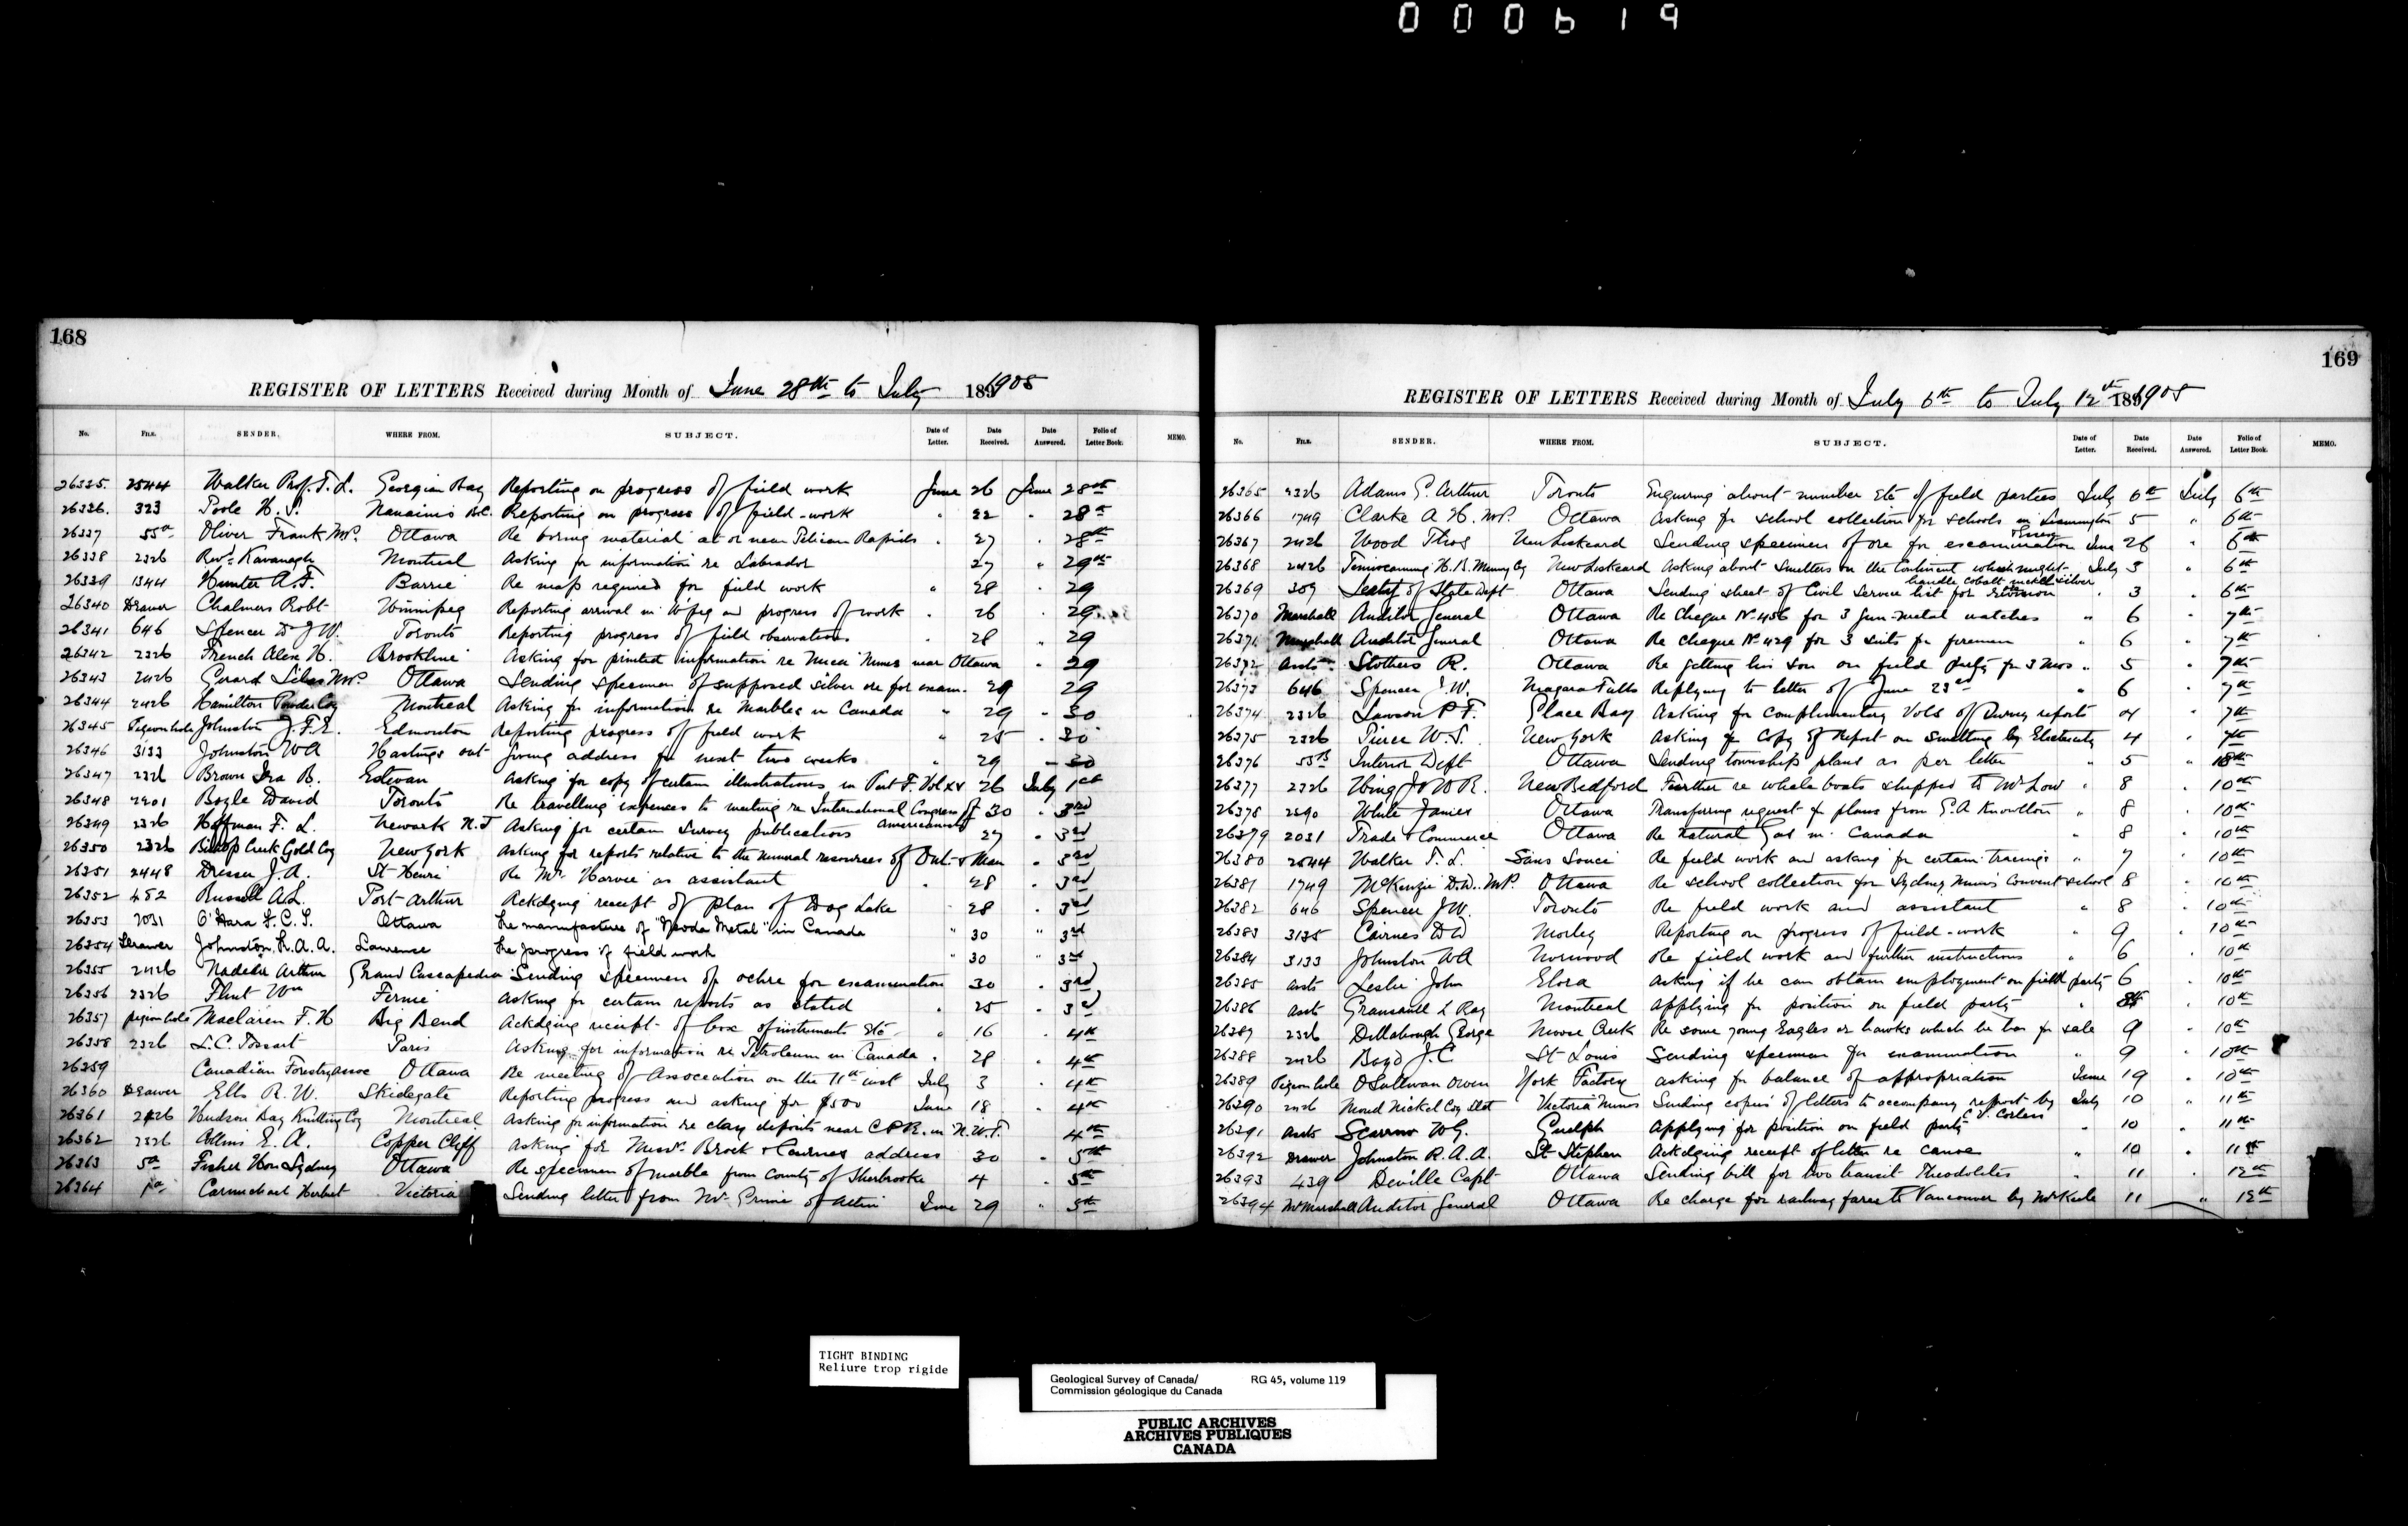 000619
168
REGISTER OF LETTERS Received during Month of June 28th to July 1891905
No. FILE. SENDER. WHERE FROM. SUBJECT. Date of Letter. Date Received. Date Answered. Folio of Letter Book. MEMO.
26335. 2544 Walker Prof. T. L. Georgian Bay Reporting on progress of field work June 26 June 28th
26336. 323 Poole H. S. Nanaimo B.C. Reporting on progress of field-work " 22 " 28th
26337 55a Oliver Frank M.P. Ottawa Re boring material at or near Pelican Rapids " 27 " 28th
26338 2326 Revd Kavanagh Montreal Asking for information re Labrador 27 " 29th
26339 1344 Hunter A. F. Barrie Re map required for field work " 28 " 29
26340 Drawer Chalmers Robt Winnipeg Reporting arrival in W'peg and progress of work " 26 " 29
26341 646 Spencer Dr J W. Toronto Reporting progress of field observations " 28 " 29
26342 2326 French Alex H. Brookline Asking for printed information re Mica Mines near Ottawa " 29
26343 2426 Gerard Silas M.P. Ottawa Sending specimen of supposed silver ore for exam. 29 29
26344 2426 Hamilton Powder Coy Montreal Asking for information re Marbles in Canada " 29 " 30
26345 Pigeon hole Johnston J. F. E. Edmonton Reporting progress of field work " 25 " 30
26346 3133 Johnston W A Hastings Ont Giving address for next two weeks " 29 " 30
26347 2326 Brown Ira B. Estevan Asking for copy of certain illustrations in Part F. Vol XV 26 July 1st
26348 2201 Boyle David Toronto Re travelling expenses to meeting re International Congress of Americanists 30 " 3rd
26349 2326 Hoffman F. L. Newark N.J Asking for certain Survey publications 27 " 3rd
26350 2326 Bishop Creek Gold Coy New York Asking for reports relative to the mineral resources of Ont. & Man " 3rd
26351 2448 Dresser J. A. St Henri Re Mr Harvie as assistant " 28 " 3rd
26352 452 Russell A. L. Port Arthur Ackdging receipt of plan of Dog Lake " 28 " 3rd
26353 2031 O'Hara F. C. T. Ottawa Re manufacture of Metal" in Canada " 30 " 3rd
26354 Drawer Johnston R. A. A. Lawrence Re progress of field work " 30 " 3rd
26355 2426 Nadeau Arthur Grand Cascapedia Sending specimen of ochre for examination 30 " 3rd
26356 2326 Flint Wm Fernie Asking for certain reports as stated " 25 " 3rd
26357 pigeon hole Maclaren F. H Big Bend Ackdging receipt of box of instruments etc " 16 " 4th
26358 2326 L. C. Paris Asking for information re Petroleum in Canada " 28 " 4th
26359 Canadian Forestry Assoc Ottawa Re meeting of Association on the 11th inst July 3 " 4th
26360 Drawer Ells R. W. Skidegate Reporting progress and asking for $500 June 18 " 4th
26361 2426 Hudson Bay Knitting Coy Montreal Asking for information re clay deposits near C P R. in N.W.T. 4th
26362 2326 Collins E. A. Copper Cliff Asking for Messrs Brock & Cairnes address 30 " 5th
26363 5a Fisher Hon Sydney Ottawa Re specimen of marble from County of Sherbrooke 4 " 5th
26364 1a Carmichael Herbert Victoria Sending letter from Mr Grime of Atlin June 29 " 5th
169
REGISTER OF LETTERS Received during Month of July 6th to July 12th 1891905
No. FILE. SENDER. WHERE FROM. SUBJECT. Date of Letter. Date Received. Date Answered. Folio of Letter Book. MEMO.
26365 2326 Adams E. Arthur Toronto Enquiring about number etc of field parties July 6th July 6th
26366 1749 Clarke A H. M.P. Ottawa Asking for school collection for schools in Leamington 5 " 6th
26367 2426 Wood Thos New Liskeard Sending specimen of ore for examination June 26 " 6th
26368 2426 Temiscaming H. B. Mining Coy New Liskeard Asking about smelters on the Continent which might July 3 " 6th
handle cobalt nickel silver
26369 309 Secty of State Dept Ottawa Sending sheet of Civil Service list for revision " 3 " 6th
26370 Marshall Auditor General Ottawa Re Cheque No 456 for 3 Gun-metal watches " 6 " 7th
26371 Marshall Auditor General Ottawa Re cheque No 429 for 3 suits for firemen " 6 " 7th
26372 Assts Stothers R. Ottawa Re getting his son on field party for 3 mos " 5 " 7th
26373 646 Spencer J. W. Niagara Falls Replying to letter of June 23rd " 6 " 7th
26374 2326 Lawson P. F. Glace Bay Asking for complimentary Vols of Survey reports 4 " 7th
26375 2326 Pierce W. S. New York Asking for Copy of Report on Smelting by Electricity 4 " 7th
26376 55B Interior Dept Ottawa Sending township plans as per letter " 5 " 10th
26377 2326 Wing J & W R. New Bedford Further re whale boats shipped to Mr Low " 8 " 10th
26378 2290 White James Ottawa Transferring request for plans from E. A Knowlton " 8 " 10th
26379 2031 Trade & Commerce Ottawa Re natural Gas in Canada " 8 " 10th
26380 2544 Walker T. L. Sans Souci Re field work and asking for certain tracings " 7 " 10th
26381 1749 McKenzie D. D. M.P. Ottawa Re school collection for Sydney Mines Convent School 8 " 10th
26382 646 Spencer J W. Toronto Re field work and assistant " 8 " 10th
26383 3135 Cairnes D D Morley Reporting on progress of field-work " 9 " 10th
26384 3133 Johnston W A Norwood Re field work and further instructions " 6 " 10th
26385 assts Leslie John Elora Asking if he can obtain employment on field party 6 " 10th
26386 assts L Ray Montreal Applying for position on field party " 8 " 10th
26387 2326 Dillabough George Moose Creek Re some young Eagles or hawks which he has for sale 9 " 10th
26388 2426 Boyd J. C St Louis Sending specimen for examination " 9 " 10th
26389 Pigeon hole O'Sullivan Owen York Factory Asking for balance of appropriation June 19 " 10th
26390 2426 Mond Nickel Coy Ltd Victoria Mines Sending copies of letters to accompany report by July 10 " 11th
26391 Assts Scarrow W G. Guelph Applying for position on field party " 10 " 11th
26392 Drawer Johnston R. A. A. St Stephen Ackdging receipt of letter re canoe " 10 " 11th
26393 439 Deville Capt Ottawa Sending bill for two transit Theodolites " 11 " 12th
26394 Mr Marshall Auditor General Ottawa Re charge for railway fares to Vancouver by Mr Keele 11 " 12th
TIGHT BINDING
Reliure trop rigide
Geological Survey of Canada/ RG 45, volume 119
Commission géologique du Canada
PUBLIC ARCHIVES
ARCHIVES PUBLIQUES
CANADA